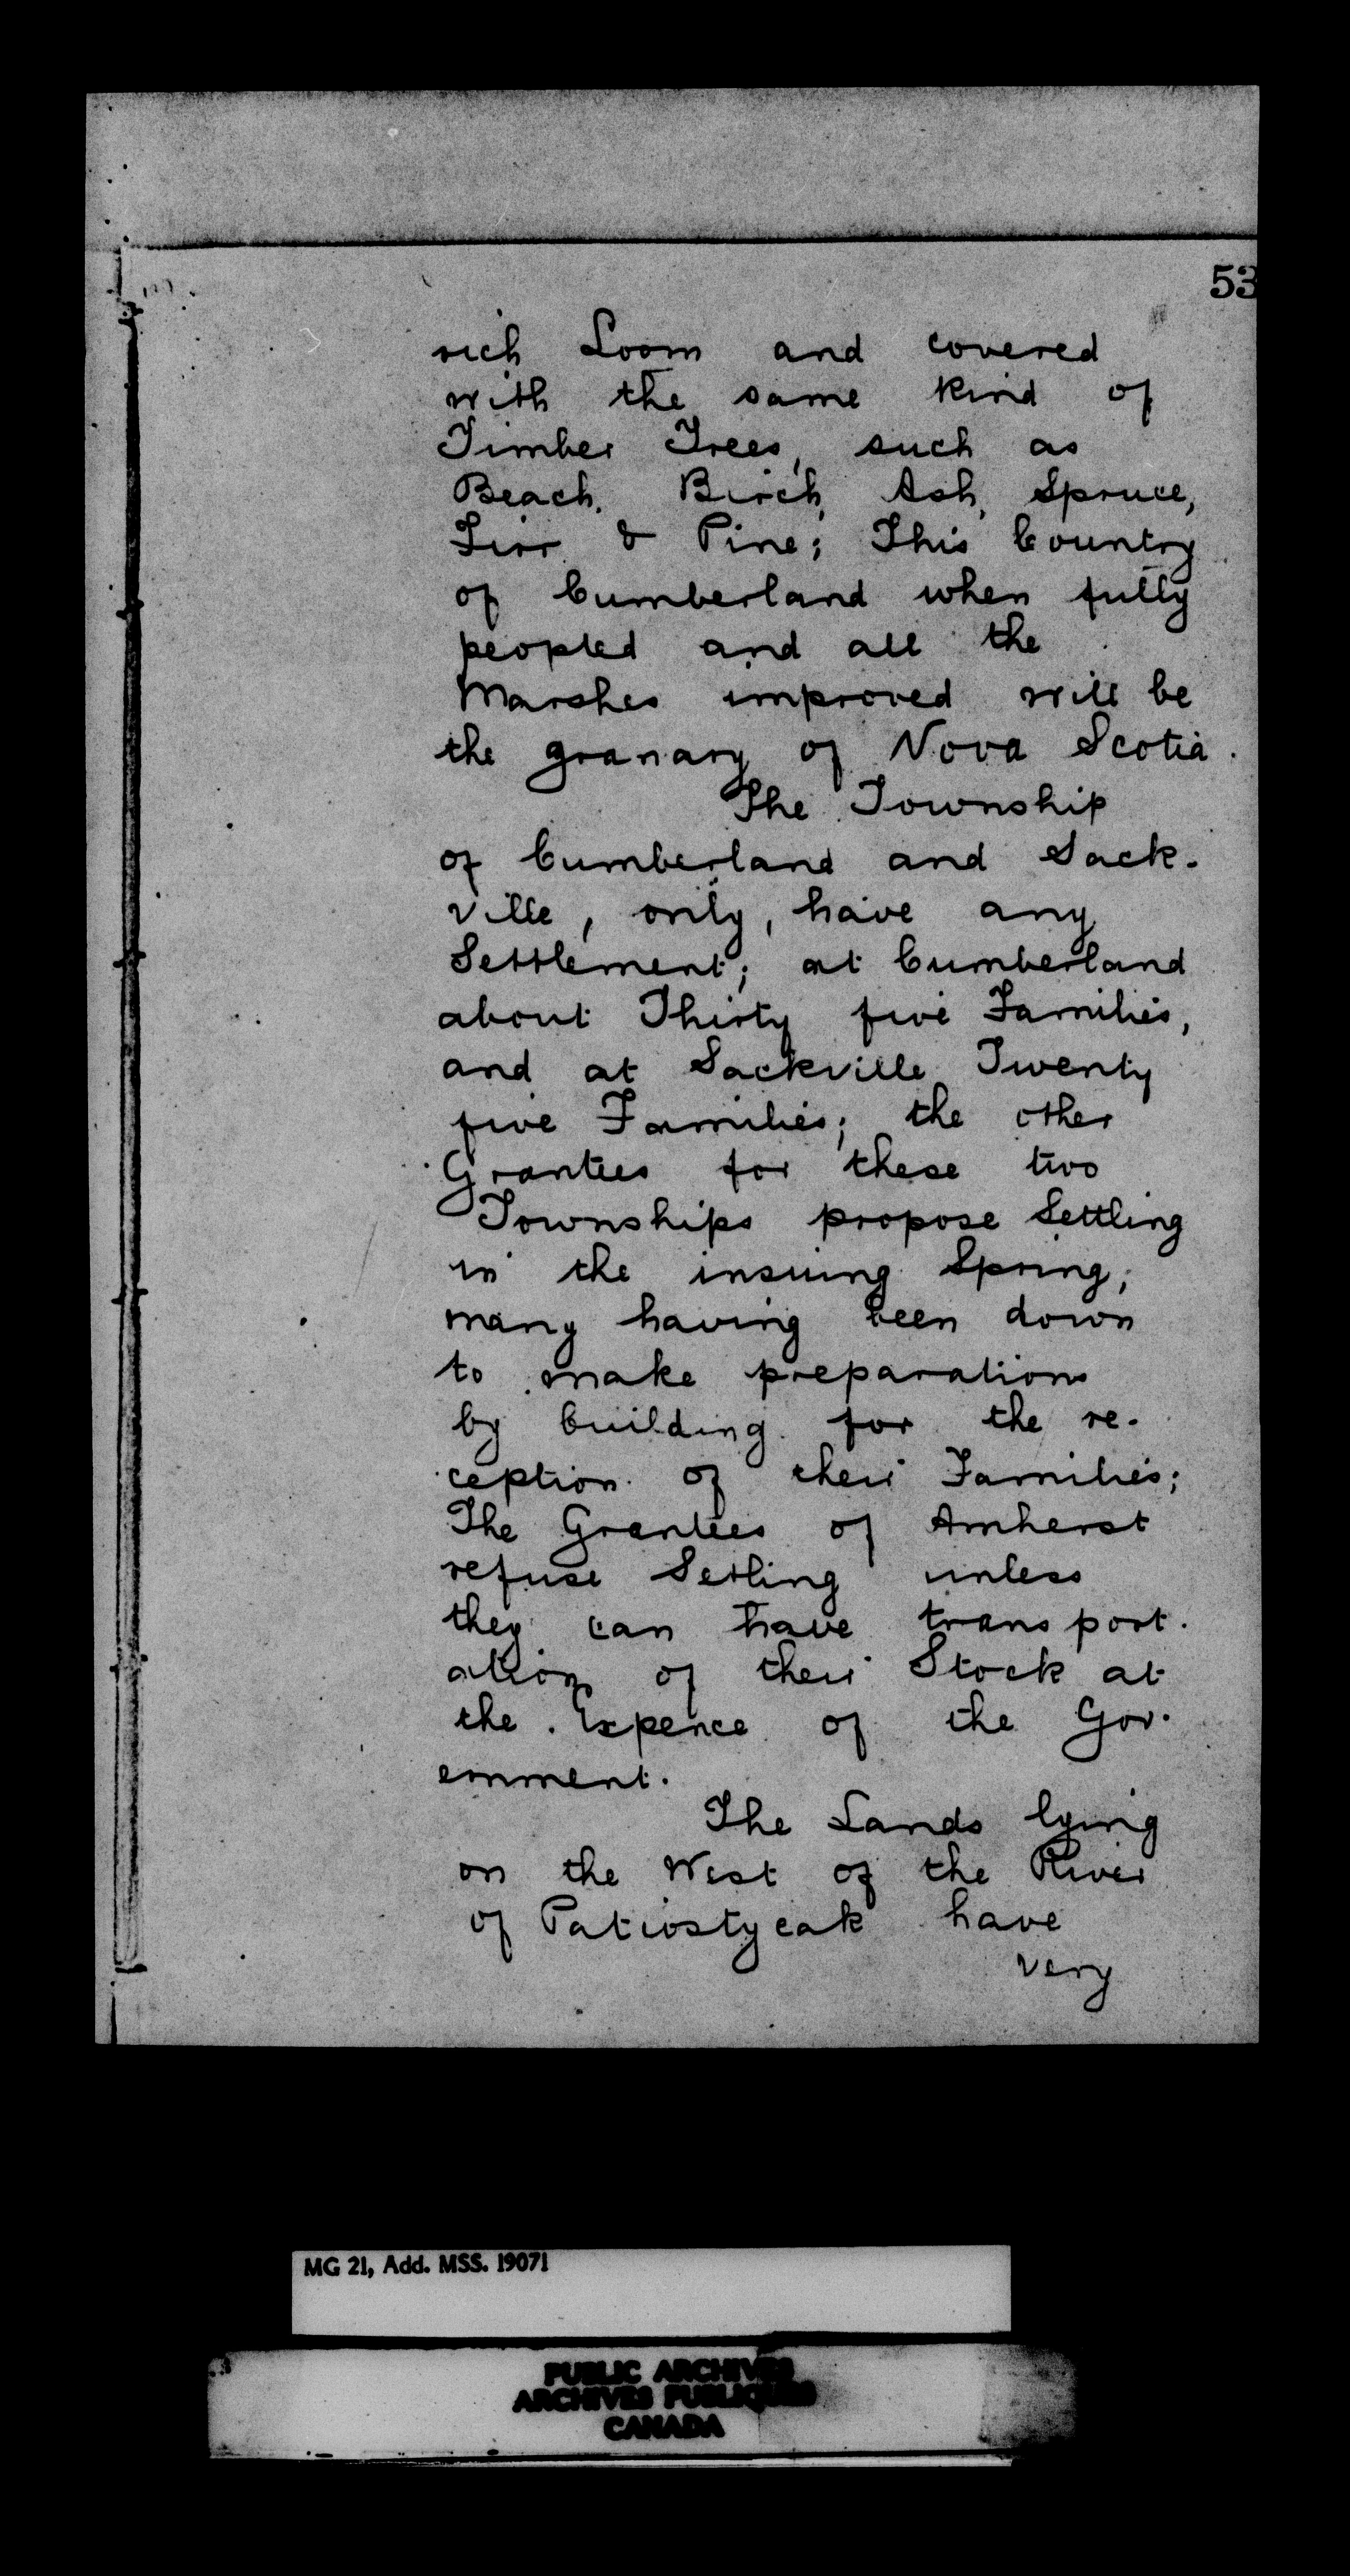 53
rich Loom and covered
with the same kind of
Timber Trees, such as
Beach, Birch, Ash, Spruce,
Firr & Pine; This Country
of Cumberland when fully
peopled and all the
Marshes improved will be
the granary of Nova Scotia.
The Township
of Cumberland and Sack-
ville, only, have any
Settlement; at Cumberland
about Thirty five Families,
and at Sackville Twenty
five Families; the other
Grantees for these two
Townships propose Settling
in the insuing Spring,
many having been down
to make preparations
by building for the re-
ception of their Families;
The Grantees of Amherst
refuse Setling unless
they can have transport-
ation of their Stock at
the Expence of the Gov-
ernment.
The Lands lying
on the West of the River
of Patiostycak have
very
MG 21, Add. MSS. 19071
PUBLIC ARCHIVES
ARCHIVES PUBLIQUES
CANADA